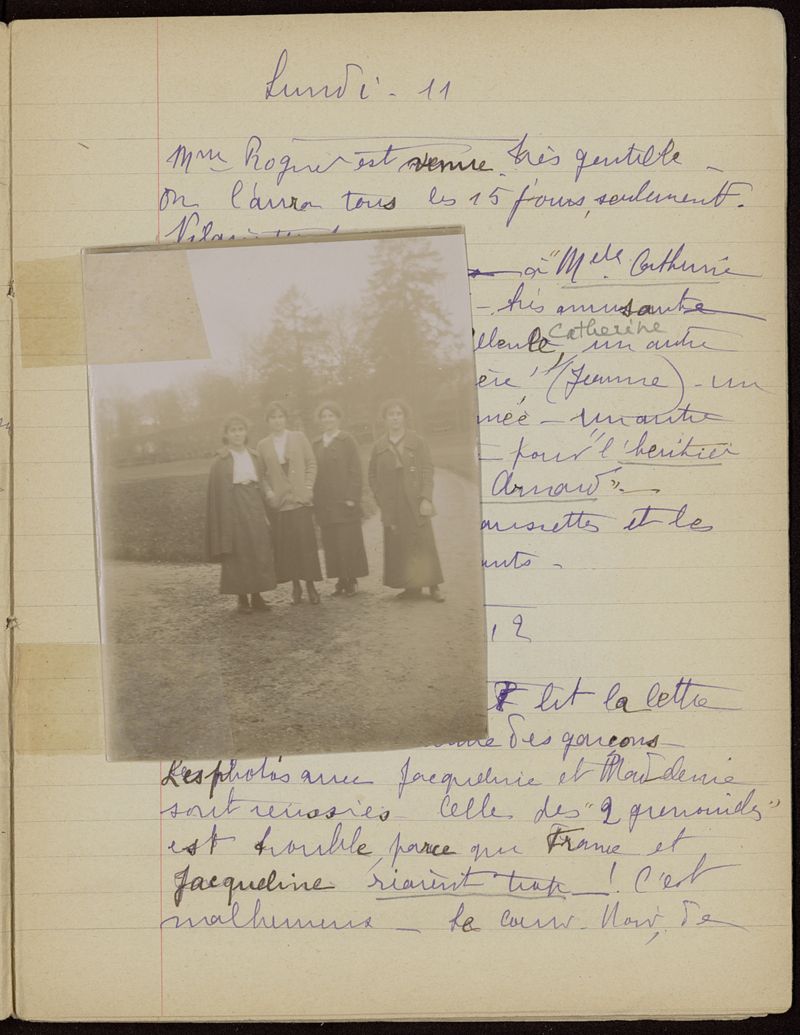 Lundi - 11
Mme Rogner est venue. très gentille -
On l'aura tous les 15 jours, seulement.
à "Melle Catherine
- très amusante
Catherine
un autre
ère" (Jeanne) - un
- un autre
- pour "l'héritier
Arnaud" -
et les
12
lit la lettre
des garçons -
Les photos avec Jacqueline et Madeleine
sont réussies - Celle des "2 grenouilles"
est trouble parce que France et
Jacqueline riaient trop - ! C'est
malheureux - Le cour. Noir, de